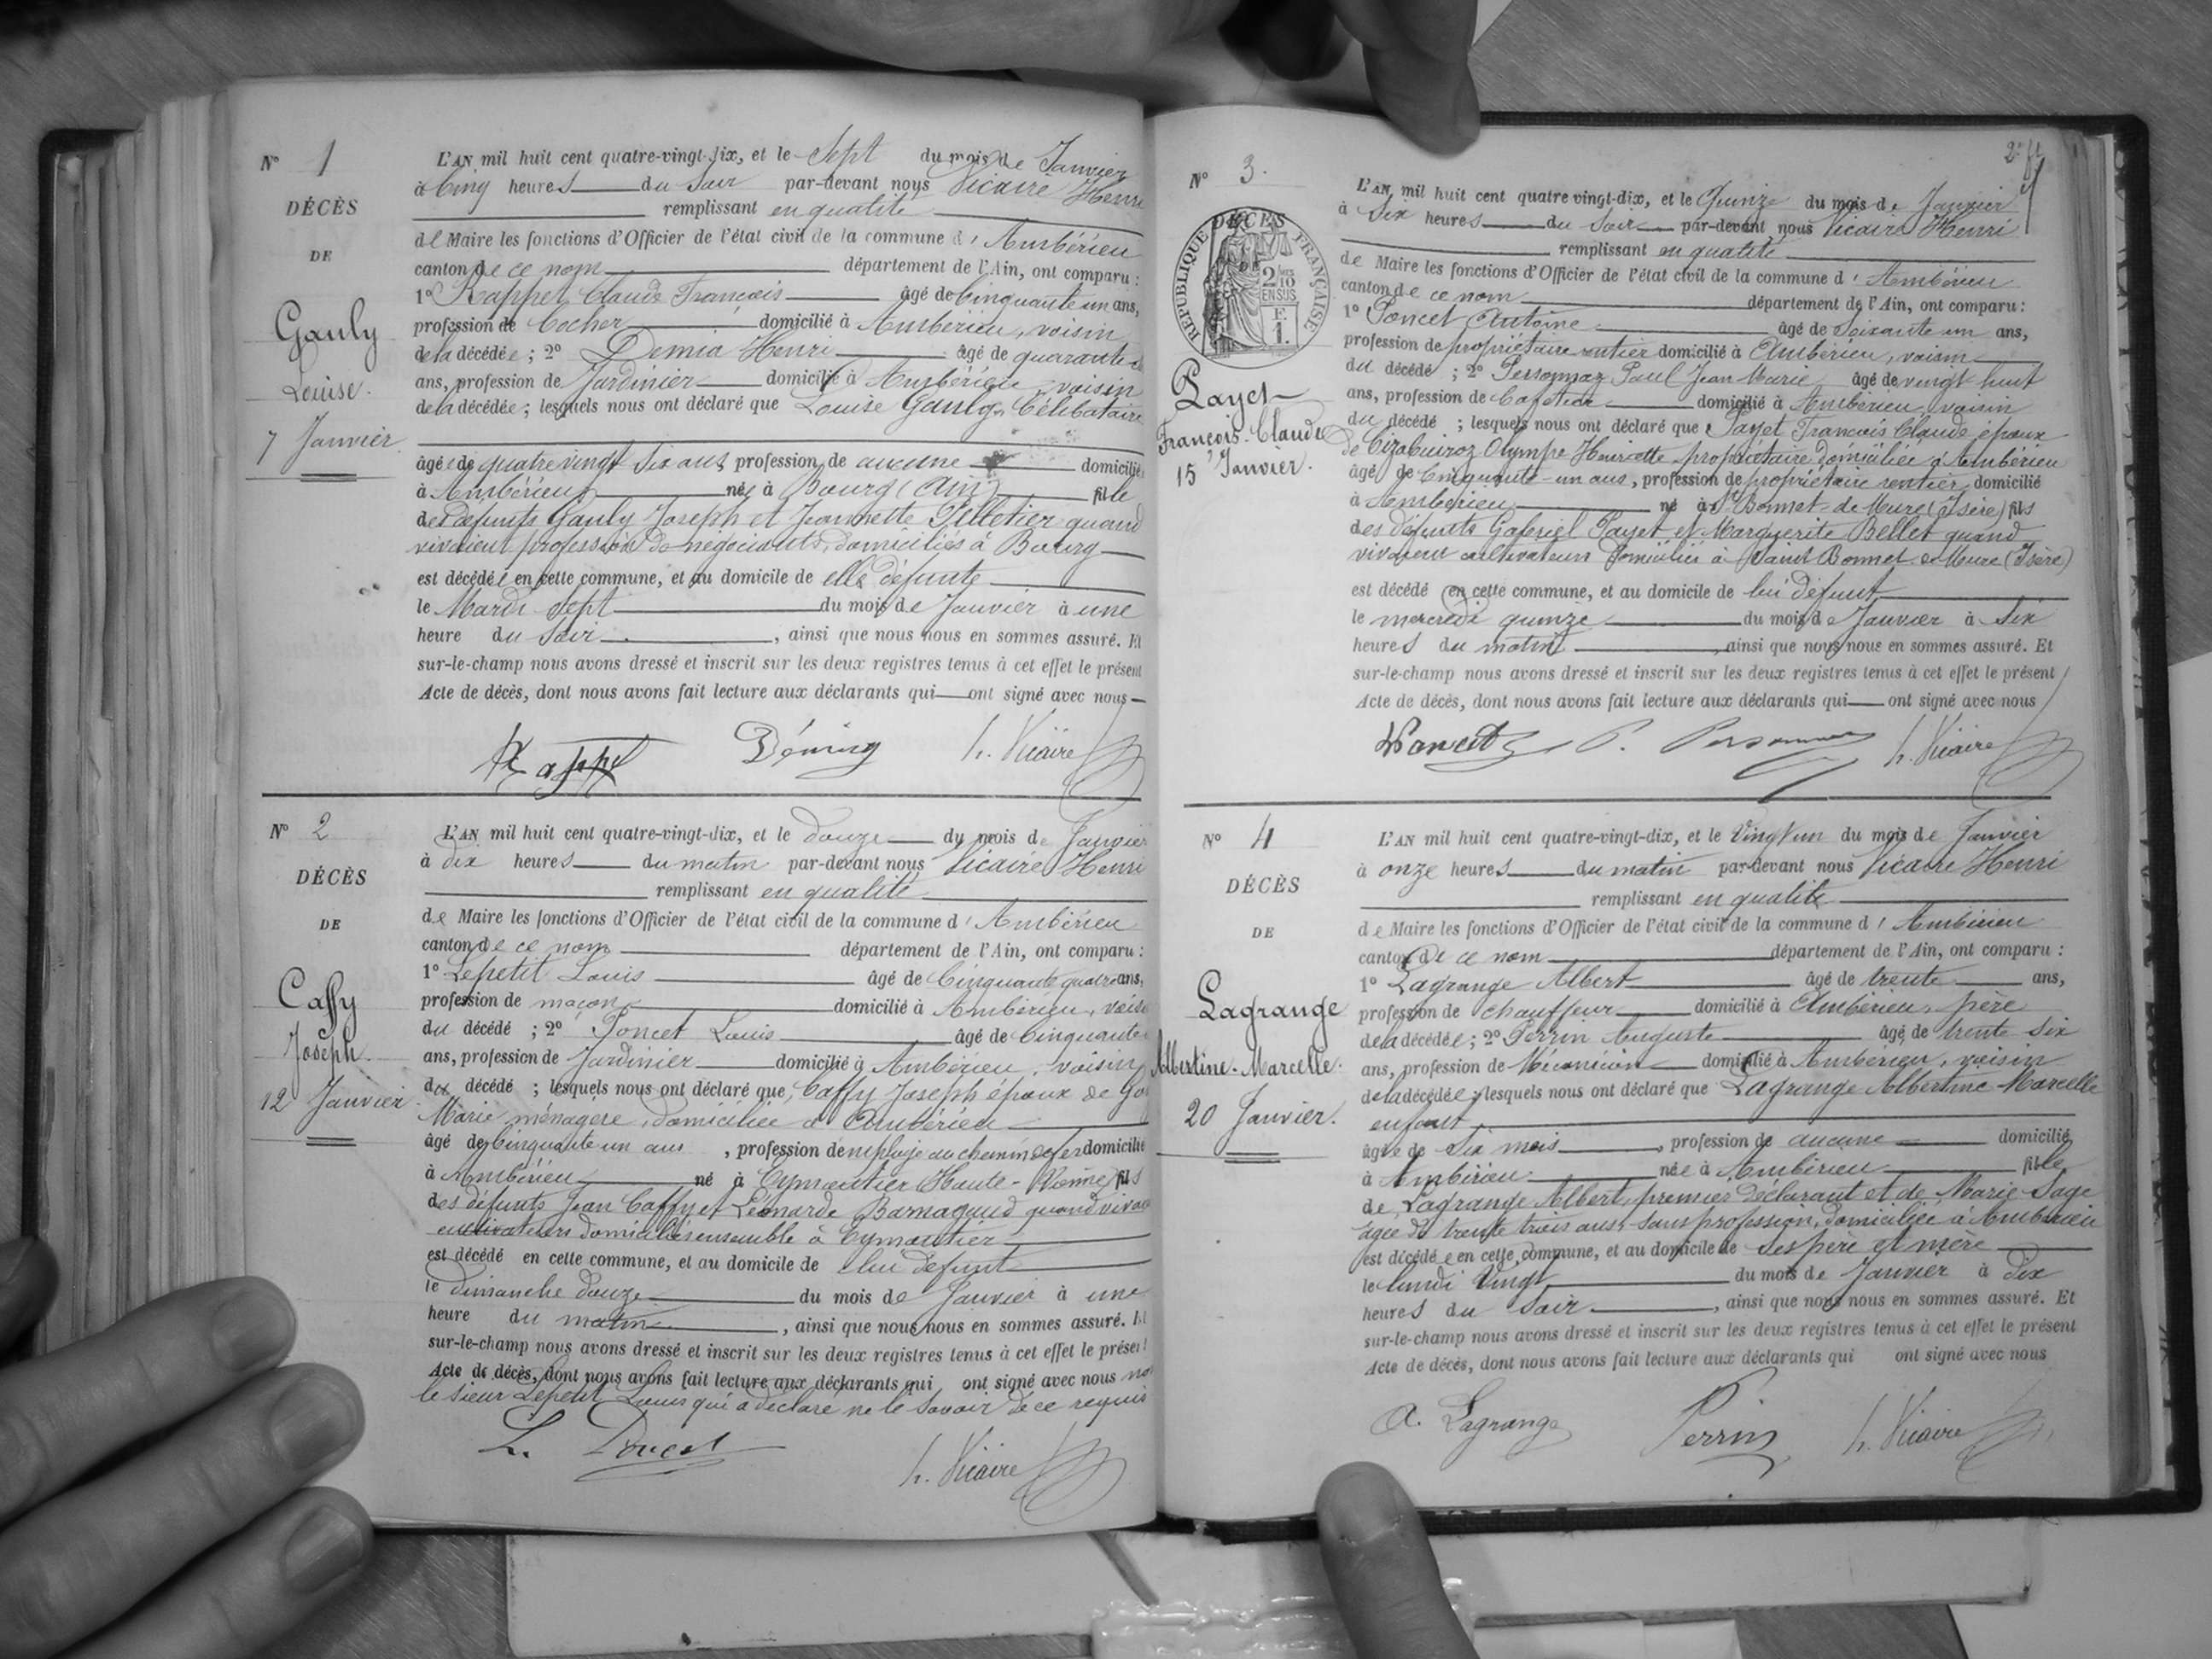 N° 1
DÉCÈS
DE
Gauly
Louise.
7 Janvier
L'AN mil huit cent quatre-vingt-dix, et le Sept du mois de Janvier
à Cinq heures du Soir par-devant nous Vicaire Henri
remplissant en qualité
de Maire les fonctions d'Officier de l'état civil de la commune d'Ambérieu
canton de ce nom département de l'Ain, ont comparu :
1° Rappet Claude François âgé de Cinquante un ans,
profession de Cocher domicilié à Ambérieu, voisin
de la décédée ; 2° Demia Henri âgé de quarante
ans, profession de Jardinier domicilié à Ambérieu voisin
de la décédée ; lesquels nous ont déclaré que Louise Gauly, Célibataire
âgée de quatre vingt six ans profession de aucune domiciliée
à Ambérieu née à Bourg (Ain) fille
des défunts Gauly Joseph et Jeannette Pelletier quand
vivaient profession de négociants, domiciliés à Bourg
est décédée en cette commune, et au domicile de elle défunte
le Mardi sept du mois de Janvier à une
heure du Soir, ainsi que nous nous en sommes assuré. Et
sur-le-champ nous avons dressé et inscrit sur les deux registres tenus à cet effet le présent
Acte de décès, dont nous avons fait lecture aux déclarants qui ont signé avec nous
Rappet Démia h. Vicaire
N° 2
DÉCÈS
DE
Caffy
Joseph.
12 Janvier
L'AN mil huit cent quatre-vingt-dix, et le douze du mois de Janvier
à dix heures du matin par-devant nous Vicaire Henri
remplissant en qualité
de Maire les fonctions d'Officier de l'état civil de la commune d'Ambérieu
canton de ce nom département de l'Ain, ont comparu :
1° Lepetit Louis âgé de Cinquante quatre ans,
profession de maçon domicilié à Ambérieu, voisin
du décédé ; 2° Poncet Louis âgé de Cinquante
ans, profession de Jardinier domicilié à Ambérieu, voisin
du décédé ; lesquels nous ont déclaré que, Caffy Joseph époux de
Marie ménagère, domiciliée à Ambérieu
âgé de Cinquante un ans, profession d'employé au chemin de fer domicilié
à Ambérieu né à Eymoutier Haute-Vienne, fils
des défunts Jean Caffy et Léonarde Barnagaud quand vivaient
cultivateurs domiciliés ensemble à Eymoutier
est décédé en cette commune, et au domicile de lui défunt
le dimanche douze du mois de Janvier à une
heure du matin, ainsi que nous nous en sommes assuré. Et
sur-le-champ nous avons dressé et inscrit sur les deux registres tenus à cet effet le présent
Acte de décès, dont nous avons fait lecture aux déclarants qui ont signé avec nous non
le sieur Lepetit Louis qui a déclaré ne le savoir de ce requis
L. Poncet h. Vicaire
2
N° 3.
DÉCÈS
DE
RÉPUBLIQUE FRANÇAISE
2/10 EN SUS
F. 1.
Payet
François-Claude
15 Janvier.
L'AN mil huit cent quatre vingt-dix, et le Quinze du mois de Janvier
à Six heures du Soir par-devant nous Vicaire Henri
remplissant en qualité
de Maire les fonctions d'Officier de l'état civil de la commune d'Ambérieu
canton de ce nom département de l'Ain, ont comparu :
1° Poncet Antoine âgé de Soixante un ans,
profession de propriétaire rentier domicilié à Ambérieu, voisin
du décédé ; 2° Personnaz Paul Jean Marie âgé de vingt huit
ans, profession de Cafetier domicilié à Ambérieu, voisin
du décédé ; lesquels nous ont déclaré que Payet François Claude époux
de Olympe Henriette propriétaire domiciliée à Ambérieu
âgé de Cinquante-un ans, profession de propriétaire rentier domicilié
à Ambérieu né à St Bonnet-de-Mure (Isère) fils
des défunts Gabriel Payet et Marguerite Bellet quand
vivaient cultivateurs domiciliés à Saint Bonnet de Mure (Isère)
est décédé en cette commune, et au domicile de lui défunt
le mercredi quinze du mois de Janvier à six
heures du matin, ainsi que nous nous en sommes assuré. Et
sur-le-champ nous avons dressé et inscrit sur les deux registres tenus à cet effet le présent
Acte de décès, dont nous avons fait lecture aux déclarants qui ont signé avec nous
Poncet P. Personnaz h. Vicaire
N° 4
DÉCÈS
DE
Lagrange
Albertine-Marcelle.
20 Janvier.
L'AN mil huit cent quatre-vingt-dix, et le Vingt un du mois de Janvier
à onze heures du matin par-devant nous Vicaire Henri
remplissant en qualité
de Maire les fonctions d'Officier de l'état civil de la commune d'Ambérieu
canton de ce nom département de l'Ain, ont comparu :
1° Lagrange Albert âgé de trente ans,
profession de Chauffeur domicilié à Ambérieu, père
de la décédée ; 2° Perrin Auguste âgé de trente six
ans, profession de Mécanicien domicilié à Ambérieu, voisin
de la décédée ; lesquels nous ont déclaré que Lagrange Albertine Marcelle
enfant
âgée de Six mois, profession de aucune domiciliée
à Ambérieu née à Ambérieu fille
de Lagrange Albert, premier déclarant et de Marie Sage
âgée de trente trois ans, sans profession, domiciliée à Ambérieu
est décédée en cette commune, et au domicile de ses père et mère
le lundi Vingt du mois de Janvier à dix
heures du Soir, ainsi que nous nous en sommes assuré. Et
sur-le-champ nous avons dressé et inscrit sur les deux registres tenus à cet effet le présent
Acte de décès, dont nous avons fait lecture aux déclarants qui ont signé avec nous
A. Lagrange Perrin h. Vicaire